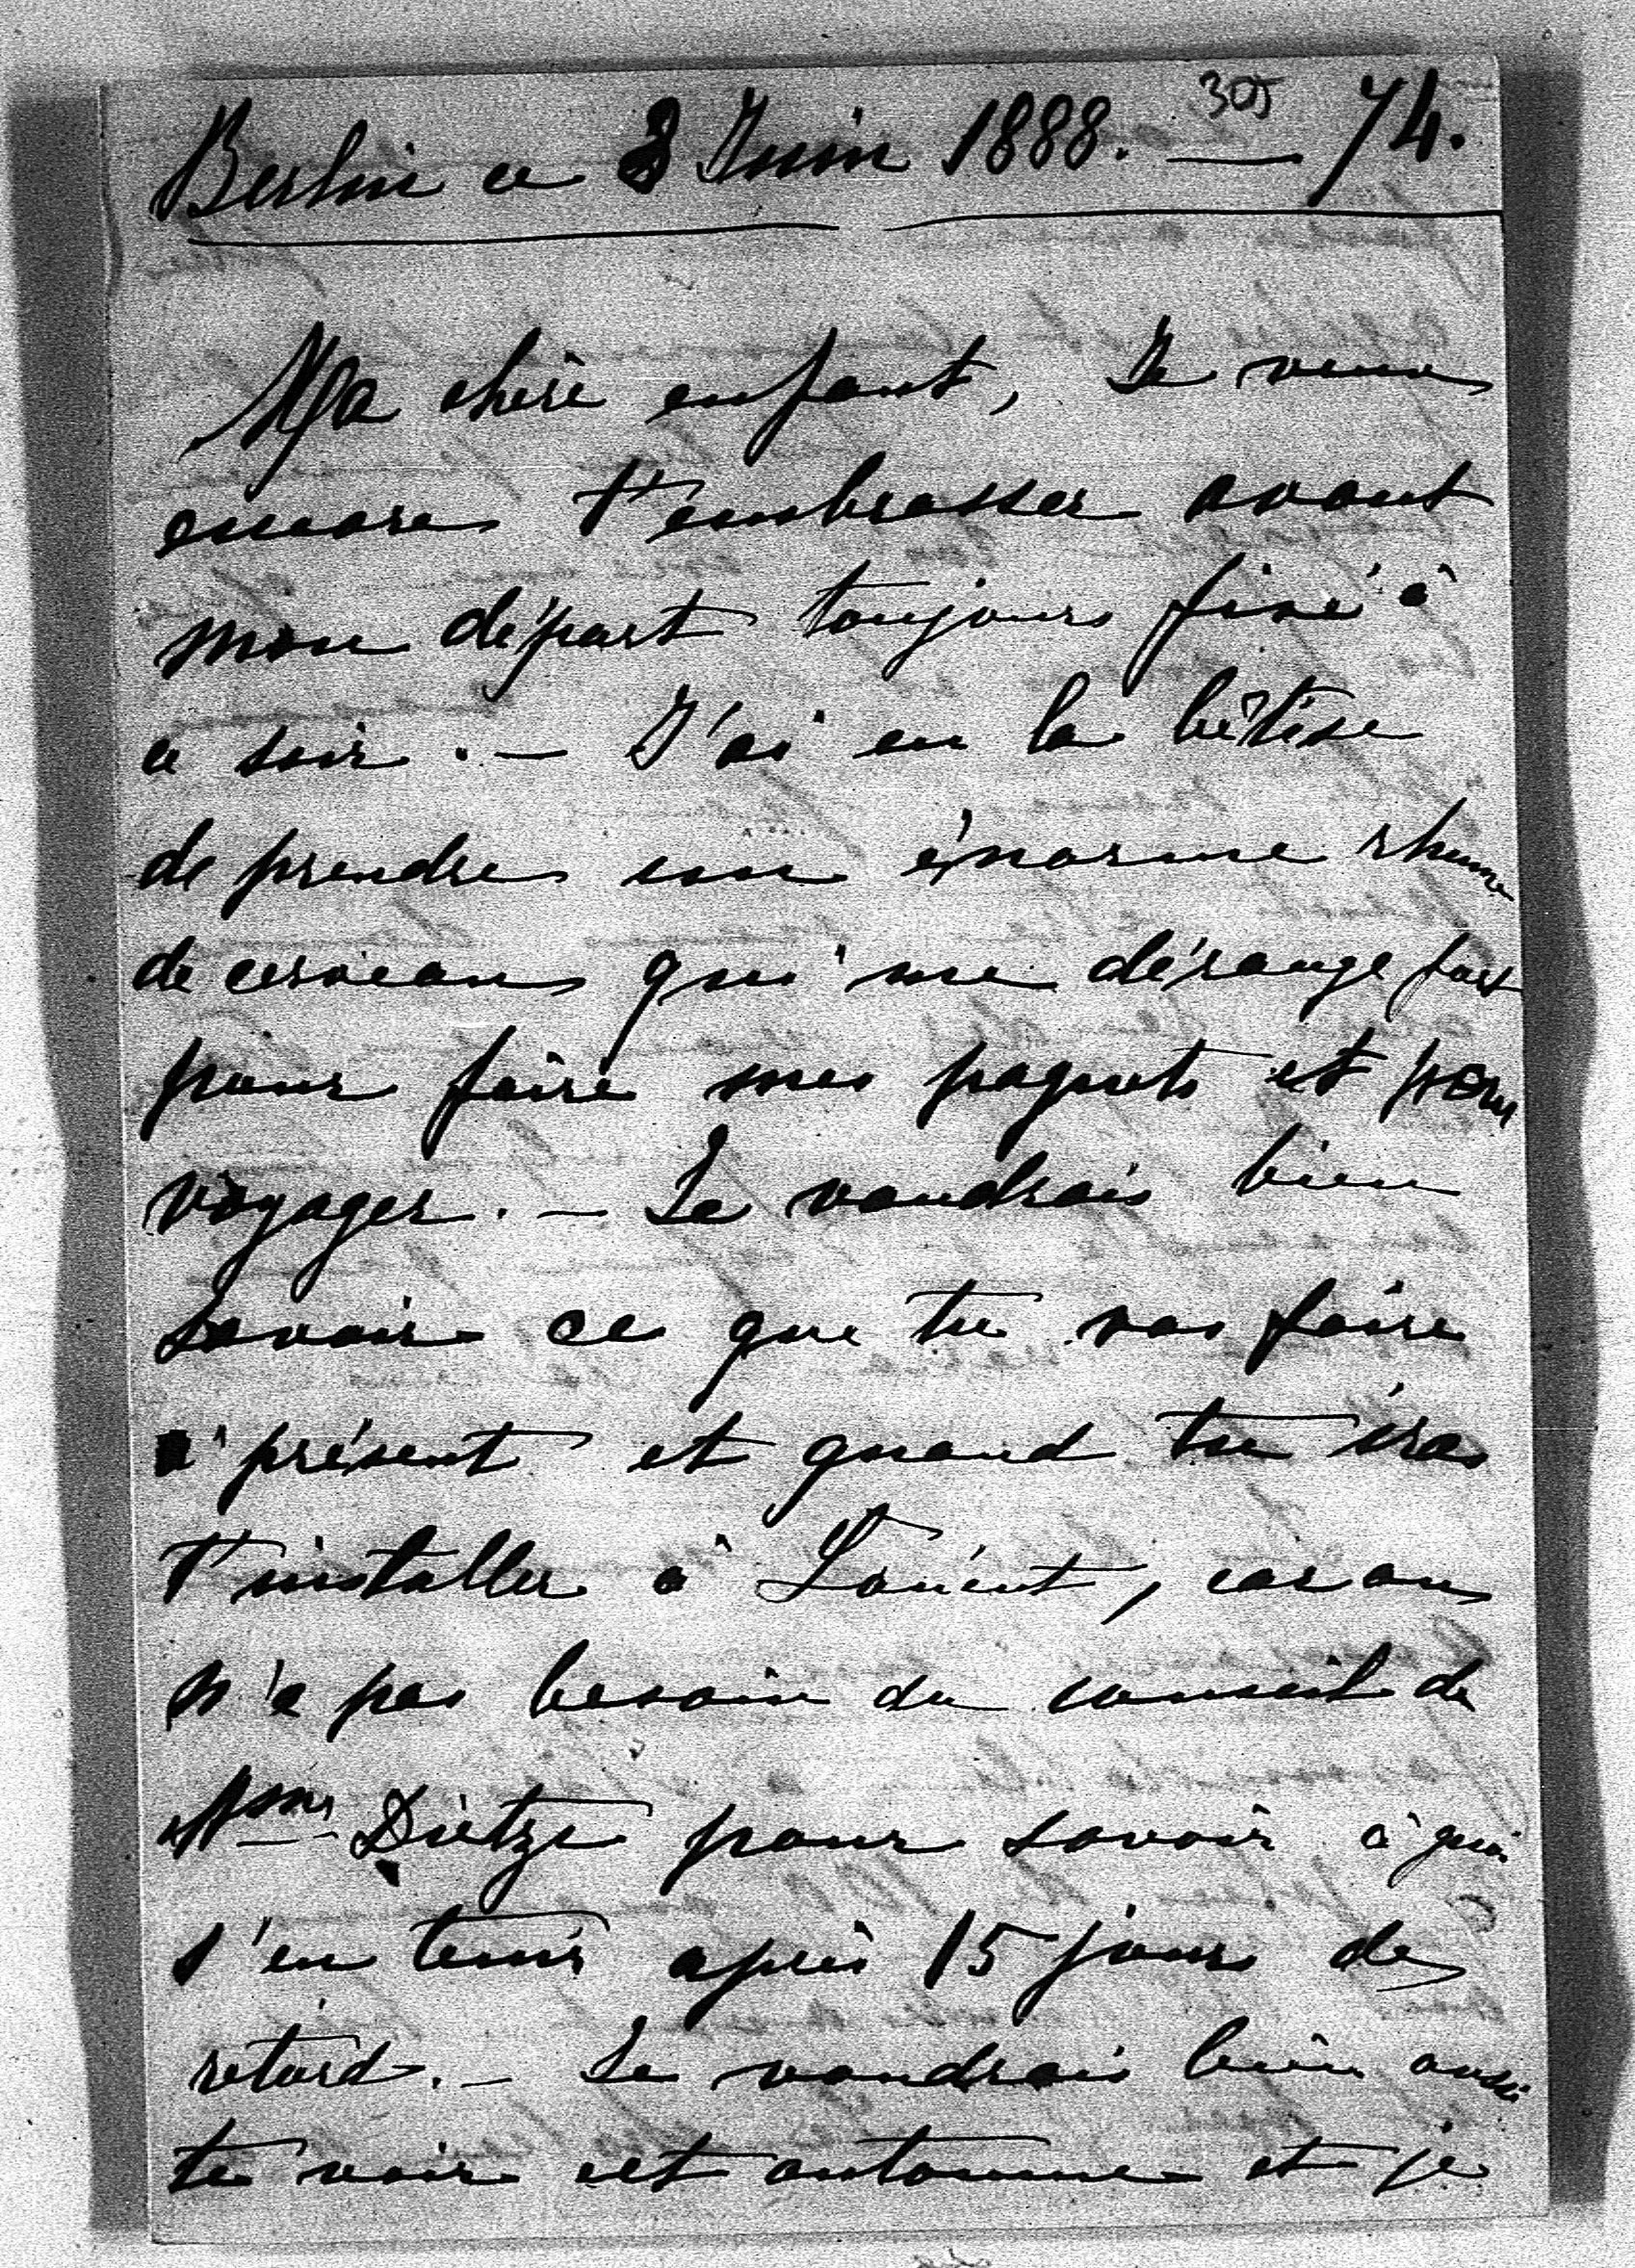 Berlin ce 3 Juin 1888. 305 — 74.
Ma chère enfant, Je viens
encore t'embrasser avant
mon départ toujours fixé à
ce soir. — J'ai eu la bêtise
de prendre un énorme rhume
de cerveau qui me dérange fort
pour faire mes paquets et pour
voyager. — Je voudrais bien
savoir ce que tu vas faire
à présent et quand tu iras
t'installer à , car on
n'a pas besoin du conseil de
Mme Dietze pour savoir à quoi
s'en tenir après 15 jours de
retard. — Je voudrais bien aussi
te voir cet automne et je